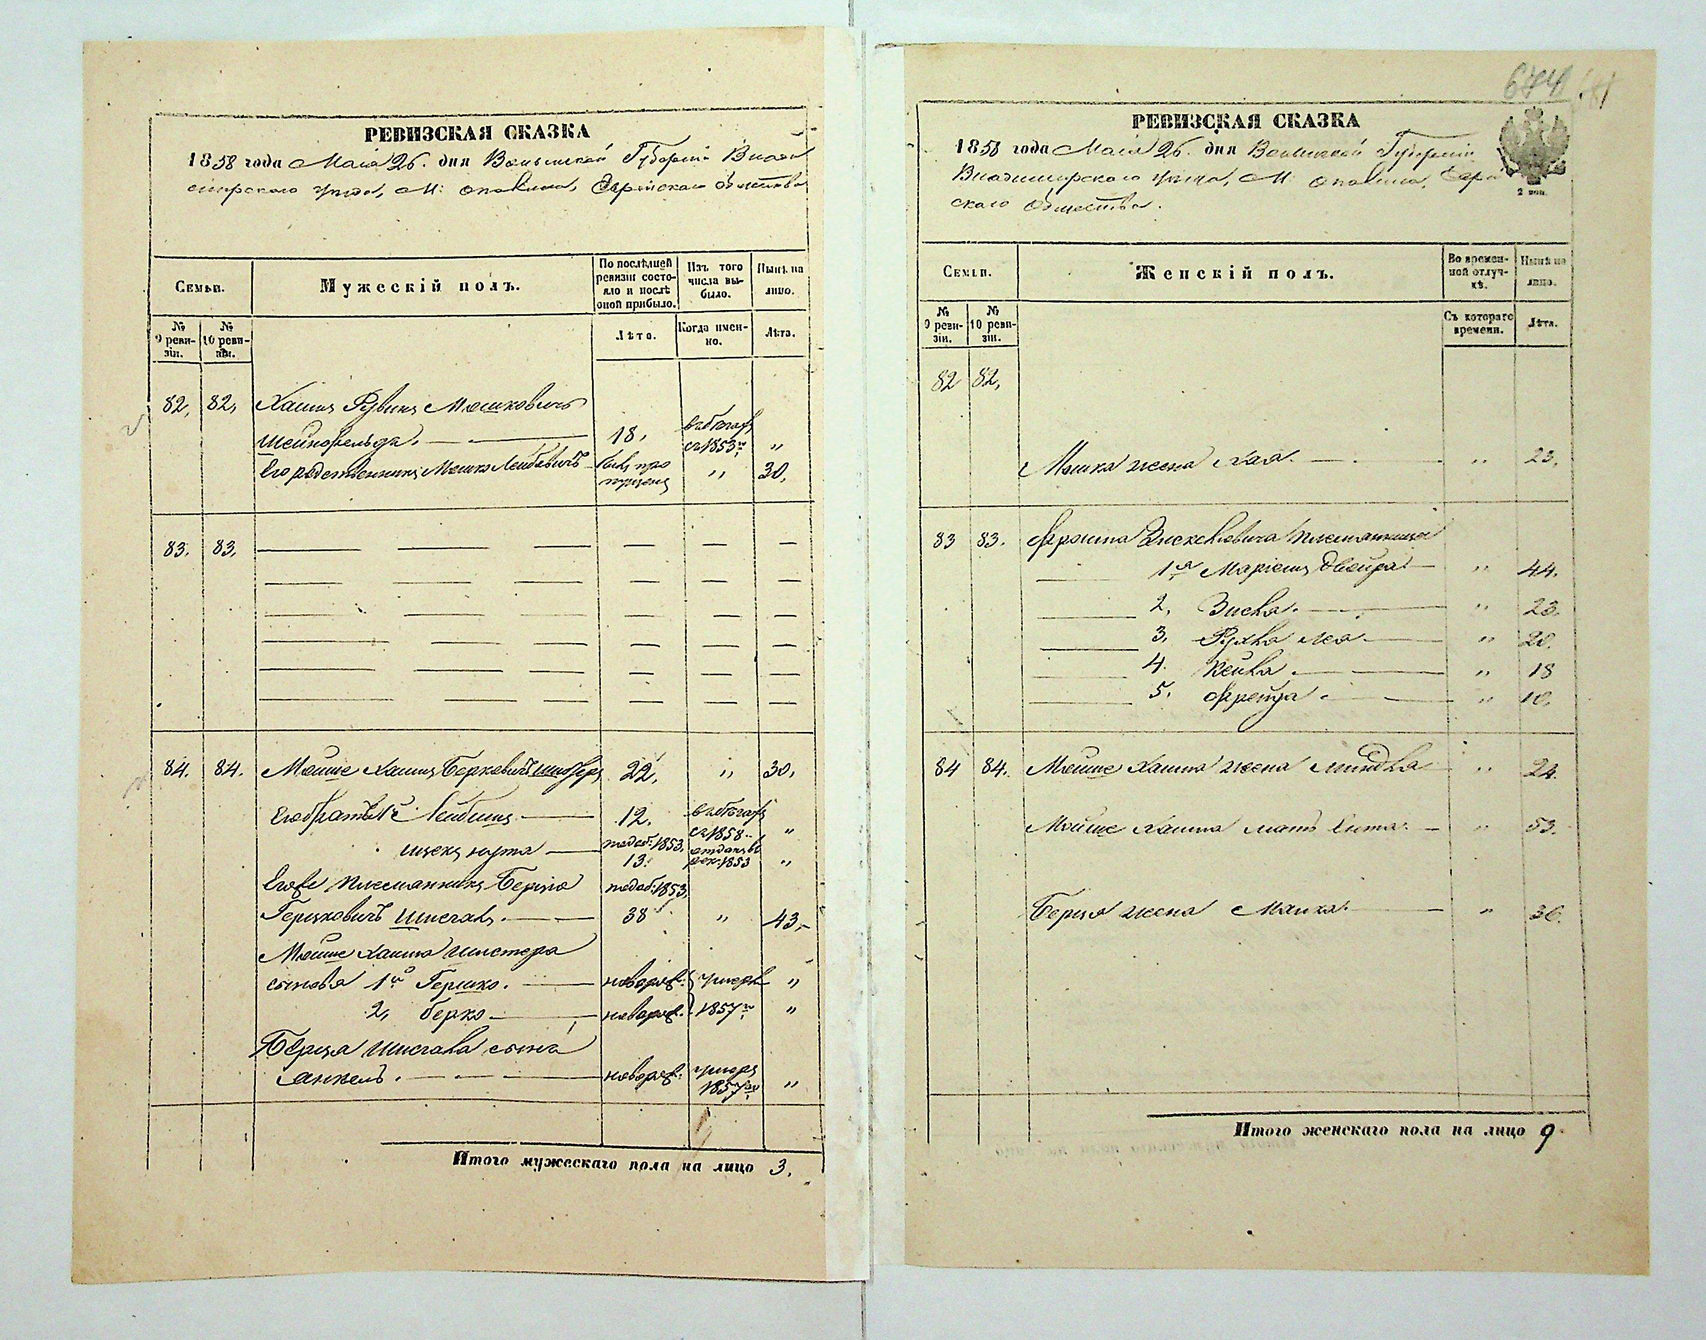 РЕВИЗСКАЯ СКАЗКА
1858 года Мая 26. дня Волынской Губерніи Влади
мирского уезда, М: Опалина, Еврейскаго Общества
Семьи.
Мужескій полъ.
По послѣдней ревизіи состояло и послѣ оной прибыло.
Изъ того числа выбыло.
Нынѣ на лицо.
№ 9 ревизіи.
№ 10 ревизіи.
Лѣта.
Когда именно.
Лѣта.
82. 82. Хаимъ Рувинъ Мошковичъ
Шейнфельдъ. 18. въ бѣгахъ
съ 1853 „
Его родственникъ Мошко Лейбовичъ „ 30.
83. 83.
84. 84. Мойше Хаимъ Берковичъ 22. „ 30.
Его братъ 1й Лейбишъ 12. въ бѣгахъ
съ 1858 „
13. 1853 „
Его же племянникъ Берко 1853
Гершковичъ 38 „ 43.
Мойше Хаима
сыновья 1й Гершко. новорож: умерли „
2. Берко новорож. 1857 „
сынъ
Анкель. новорож: умеръ
1857 „
Итого мужескаго пола на лицо 3.
674
РЕВИЗСКАЯ СКАЗКА
1858 года Мая 26. дня Волынской Губерніи
Владимирскаго уезда, М: Опалина, Еврей
скаго Общества.
2 коп.
Семьи.
Женскій полъ.
Во временной отлучкѣ.
Нынѣ на лицо.
№ 9 ревизіи.
№ 10 ревизіи.
Съ котораго времени.
Лѣта.
82 82.
Мошка жена Хая. „ 23.
83 83. Фроима племянницы
1я Маріемъ Двейра „ 44.
2. Зисла. „ 23.
3. Рухля Лея „ 20.
4. Кейла „ 18
5. Фрейда „ 10.
84 84. Мойше Хаима жена Миндля „ 24.
Мойше Хаима мать Ента. „ 53.
жена Малка „ 36.
Итого женскаго пола на лицо 9